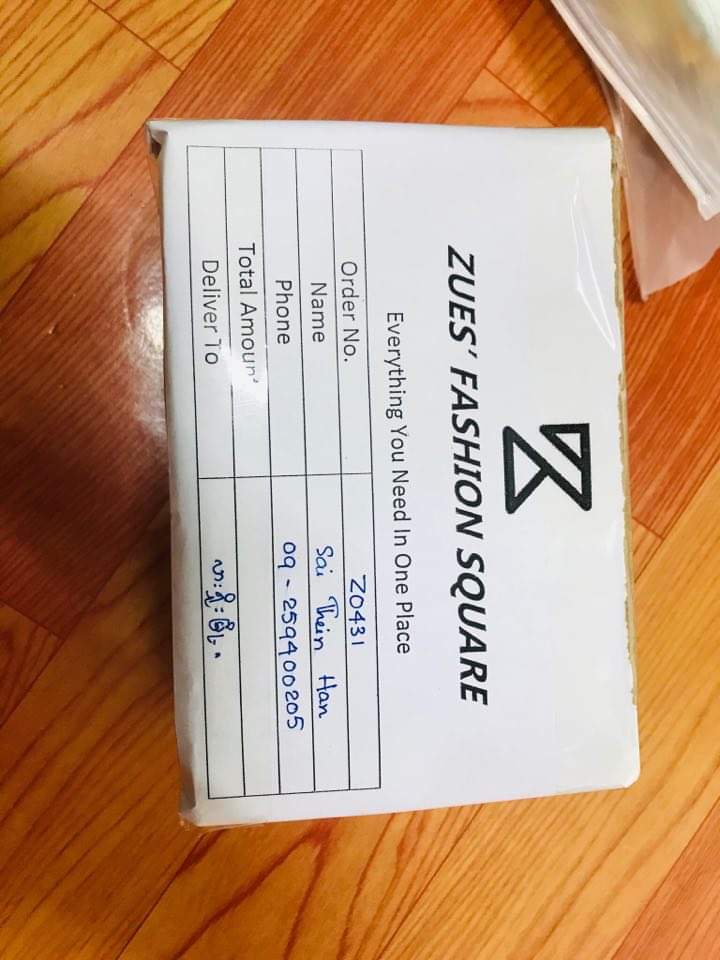 ZUES' FASHION SQUARE
Everything You Need In One Place
Order No. Z0431
Name Sai Thein Han
Phone 09 - 259400205
Total Amount
Deliver To လားရှိုးမြို့။